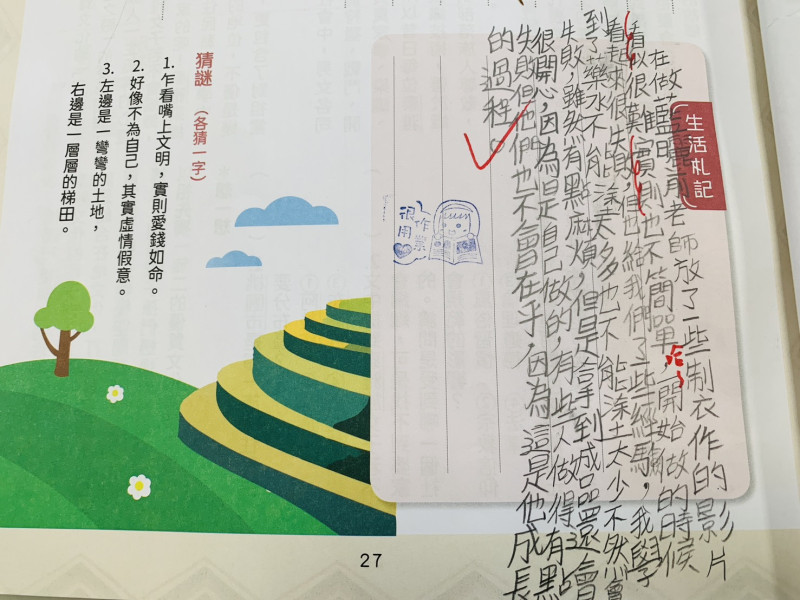 生活札記
在做藍曬前老師放了一些制衣作的影片
看以很難，實則也不簡單，開始做的時候
看起來很失敗，但也給我們了一些經驗，我學
到了藥水不能塗太多也不能塗太少不然會
失敗，雖然有點麻煩，但是拿到成品還會
很開心，因為是自己做的，有些人做得有點
失敗但他們也不會在乎，因為這是他成長
的過程。
作業
很用
猜謎（各猜一字）
1. 乍看嘴上文明，實則愛錢如命。
2. 好像不為自己，其實虛情假意。
3. 左邊是一彎彎的土地，
右邊是一層層的梯田。
27